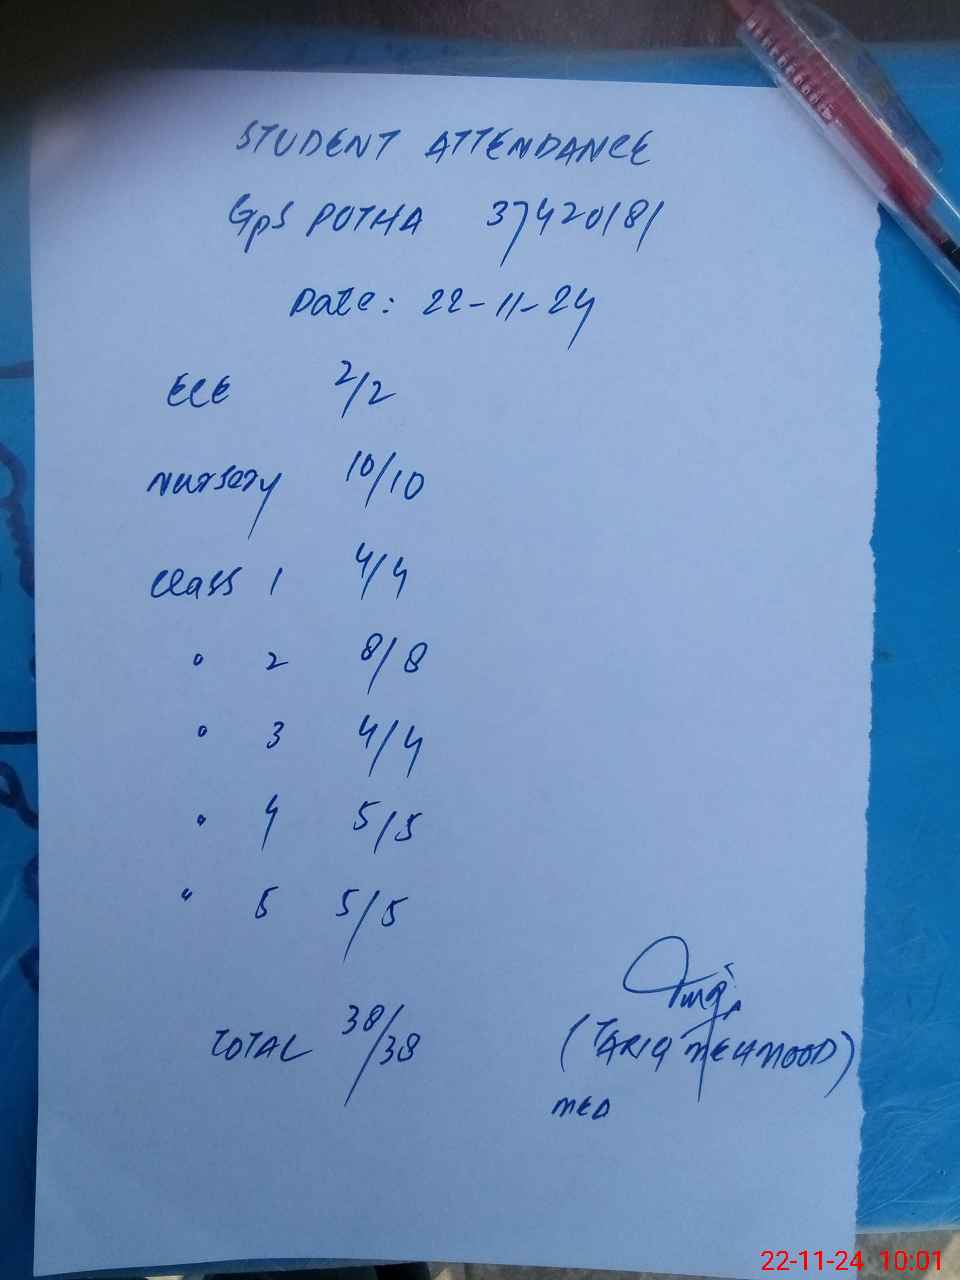 STUDENT ATTENDANCE
GPS POTHA 37420181
Date: 22-11-24
ECE 2/2
Nursery 10/10
Class 1 4/4
" 2 8/8
" 3 4/4
" 4 5/5
" 5 5/5
TOTAL 38/38
(TARIQ MEHMOOD)
MED
22-11-24 10:01